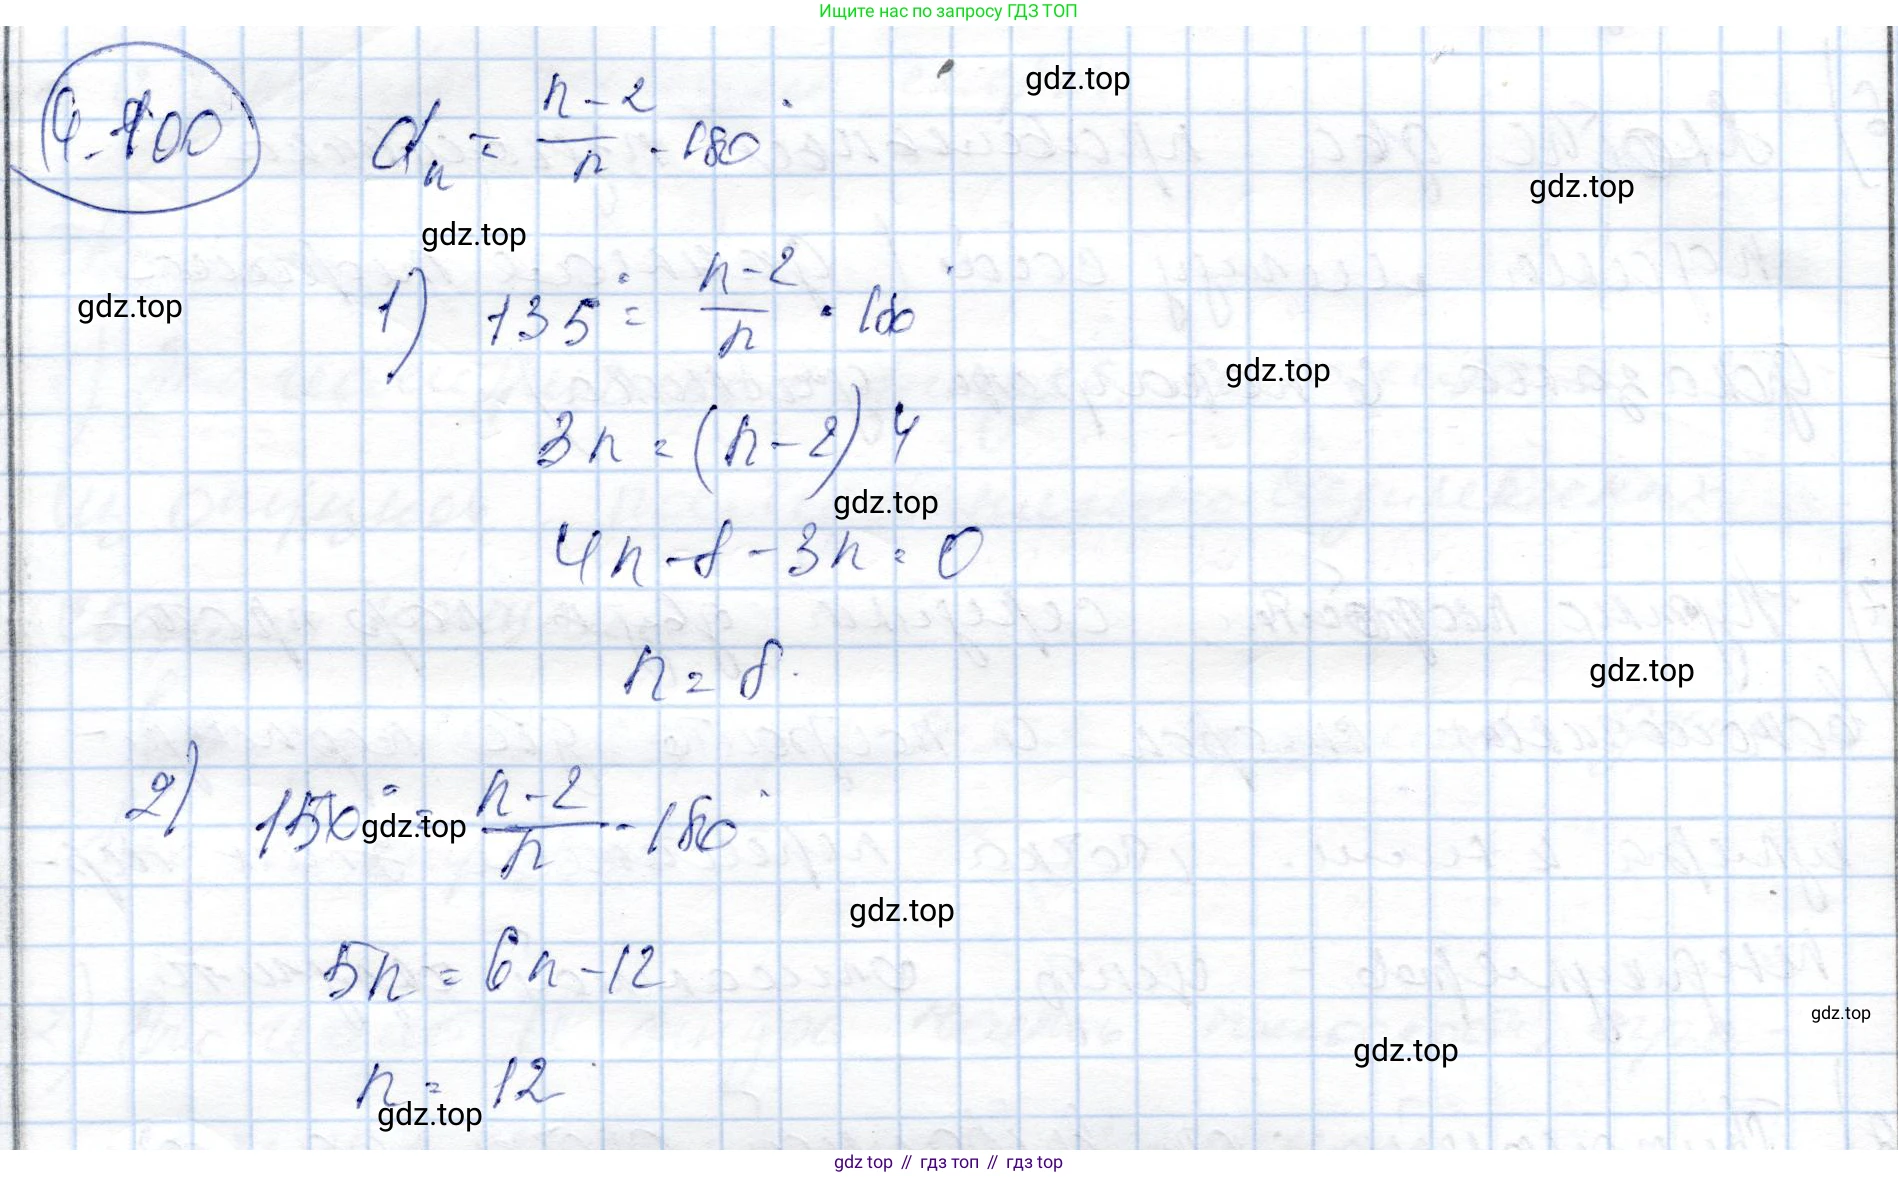 Ищите нас по запросу ГДЗ ТОП
4.100
αₙ = (n-2)/n · 180°
gdz.top
gdz.top
gdz.top
gdz.top
1) 135° = (n-2)/n · 180°
gdz.top
3n = (n-2) 4
gdz.top
4n-8-3n = 0
n = 8.
gdz.top
2) 150° = (n-2)/n · 180°
gdz.top
gdz.top
5n = 6n-12
gdz.top
gdz.top
n = 12
gdz.top
gdz top // гдз топ // гдз top